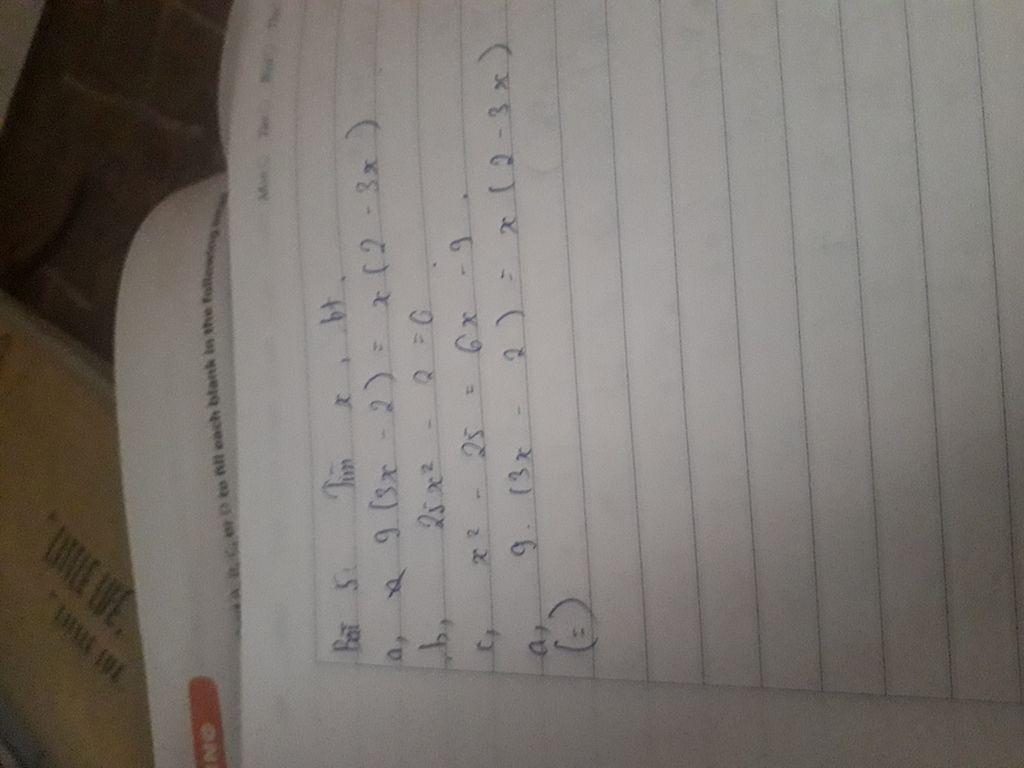 Bài 5: Tìm x, bt.
a, 9(3x - 2) = x(2 - 3x)
b, 25x² - 2 = 0
c, x² - 25 = 6x - 9.
a, 9.(3x - 2) = x(2 - 3x)
(=)
C, or D to fill each blank in the following
"LITTLE LIFE,
NG